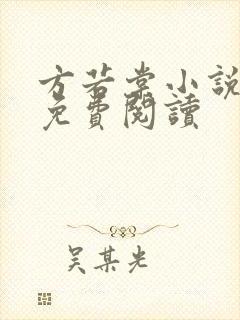 方若棠小說
免費閱讀
吴某光